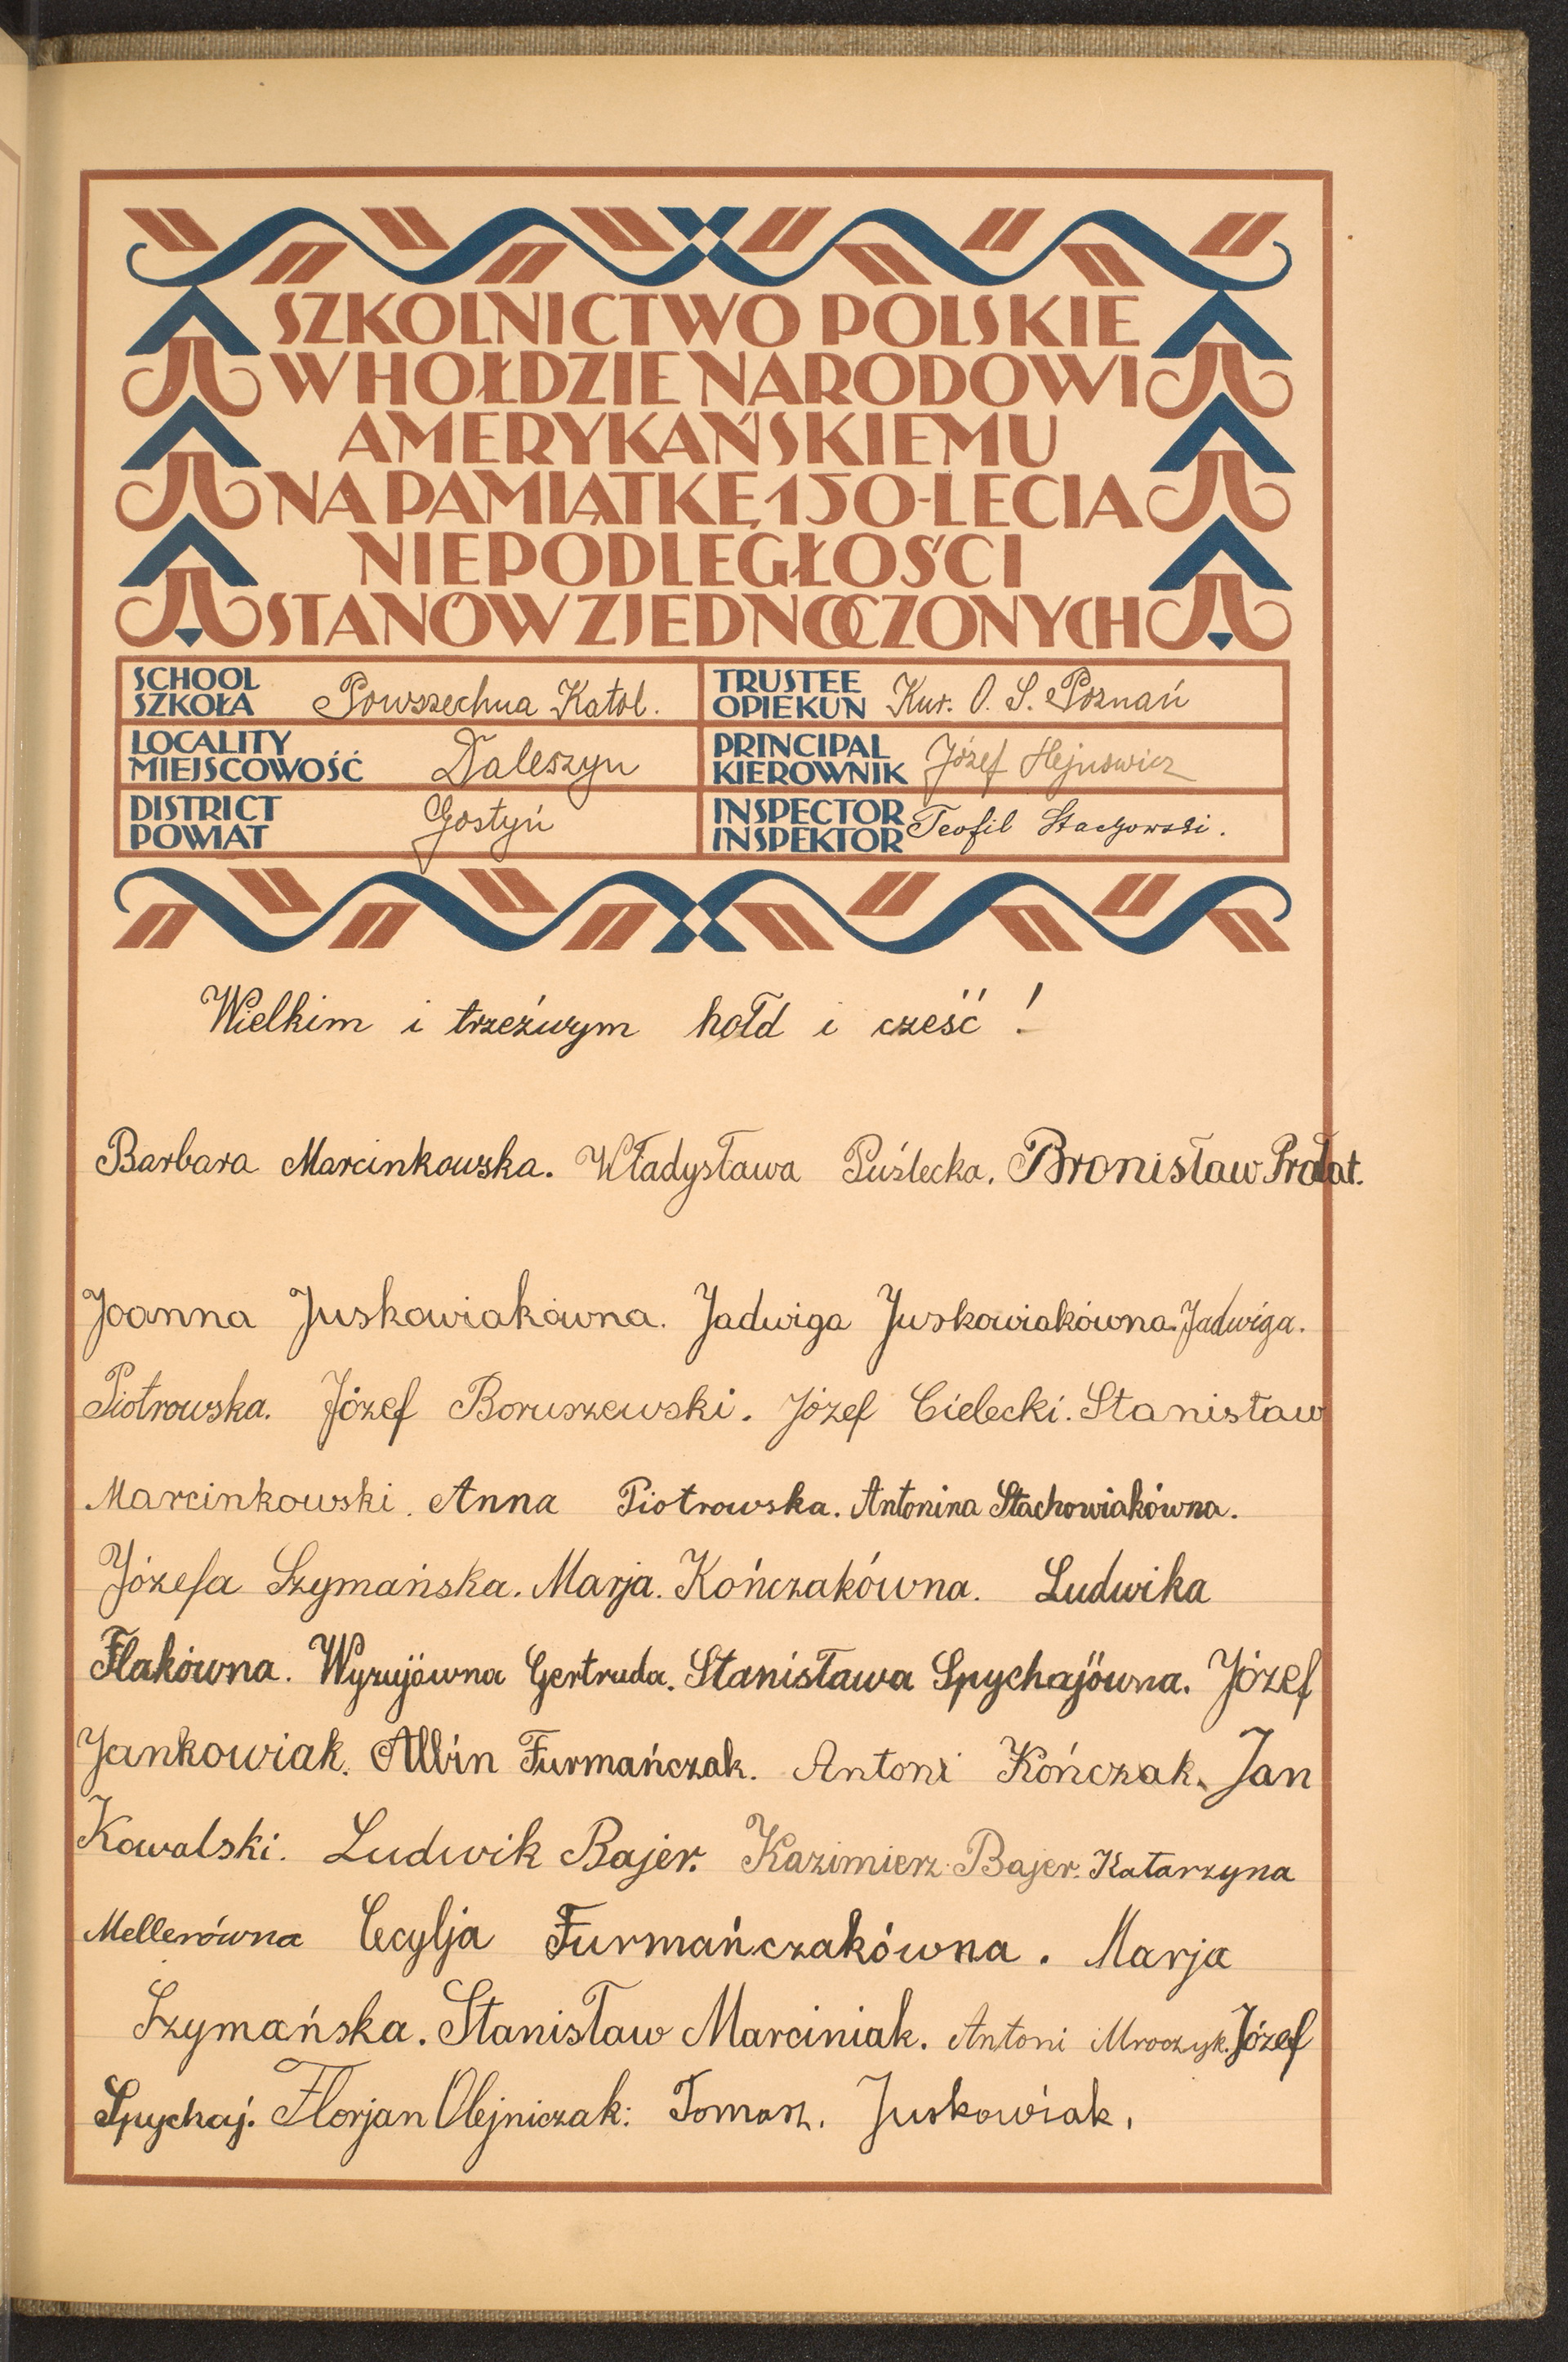 SZKOLNICTWO POLSKIE
W HOŁDZIE NARODOWI
AMERYKAŃSKIEMU
NA PAMIĄTKĘ 150-LECIA
NIEPODLEGŁOŚCI
STANÓW ZJEDNOCZONYCH
SCHOOL
SZKOŁA Powszechna Katol.
TRUSTEE
OPIEKUN Kur. O. S. Poznań
LOCALITY
MIEJSCOWOŚĆ Daleszyn
PRINCIPAL
KIEROWNIK Józef Hejnowicz
DISTRICT
POWIAT Gostyń
INSPECTOR
INSPEKTOR Teofil Stachowski.
Wielkim i trzeźwym hołd i cześć !
Barbara Marcinkowska. Władysława Puślecka. Bronisław Prałat.
Joanna Juskowiakówna. Jadwiga Juskowiakówna. Jadwiga.
Piotrowska. Józef Boruszewski. Józef Cielecki. Stanisław
Marcinkowski. Anna Piotrowska. Antonina Stachowiakówna.
Józefa Szymańska. Marja. Kończakówna. Ludwika
Flakówna. Wyzujówna Gertruda. Stanisława Spychajówna. Józef
Jankowiak. Albin Furmańczak. Antoni Kończak. Jan
Kowalski. Ludwik Bajer. Kazimierz Bajer. Katarzyna
Mellerówna Cecylja Furmańczakówna. Marja
Szymańska. Stanisław Marciniak. Antoni Mroczyk. Józef
Spychaj. Florjan Olejniczak: Tomasz. Juskowiak.